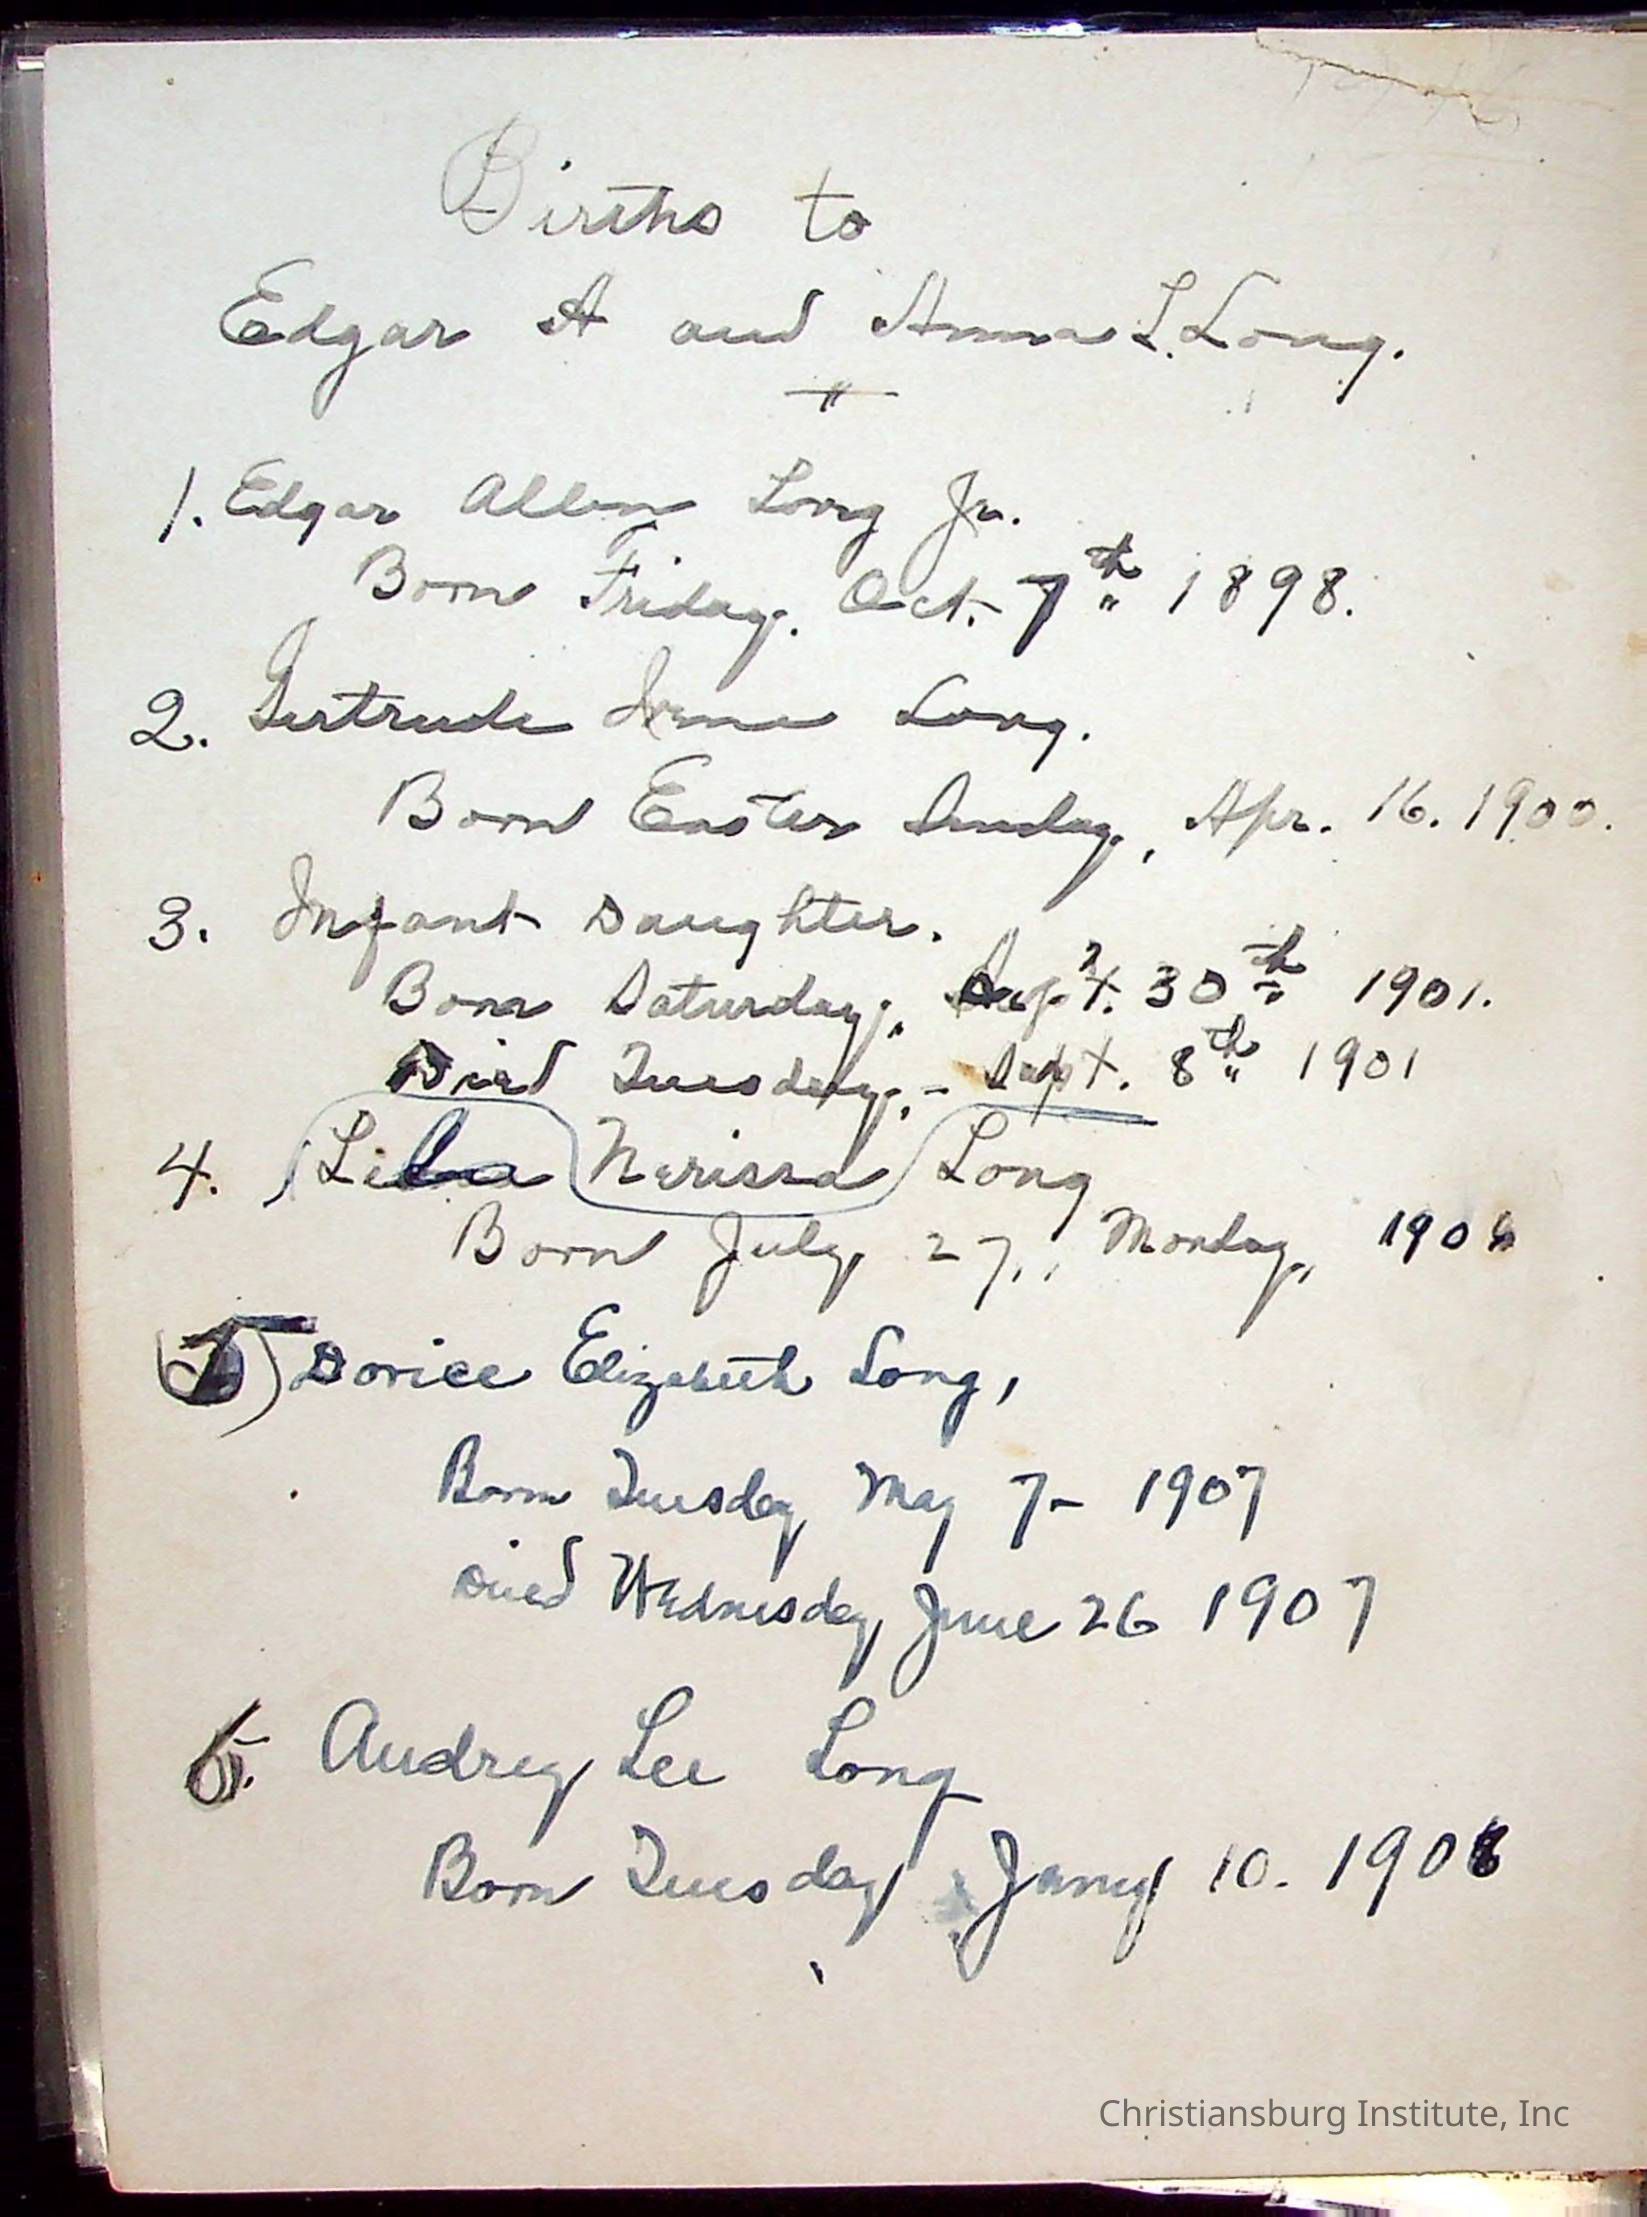 Births to
Edgar A and Anna L. Long.
"
1. Edgar Allen Long Jr.
Born Friday. Oct. 7th 1898.
2. Gertrude Irma Long.
Born Easter Sunday, Apr. 16. 1900.
3. Infant Daughter.
Born Saturday, Sept. 30th 1901.
Died Tuesday, - Sept. 8th 1901
4. Lila Nerissa Long
Born July 27, Monday,
Dorice Elizabeth Long,
Born Tuesday May 7- 1907
Died Wednesday, June 26 1907
6. Audrey Lee Long
Born Tuesday Jany 10. 1908
Christiansburg Institute, Inc